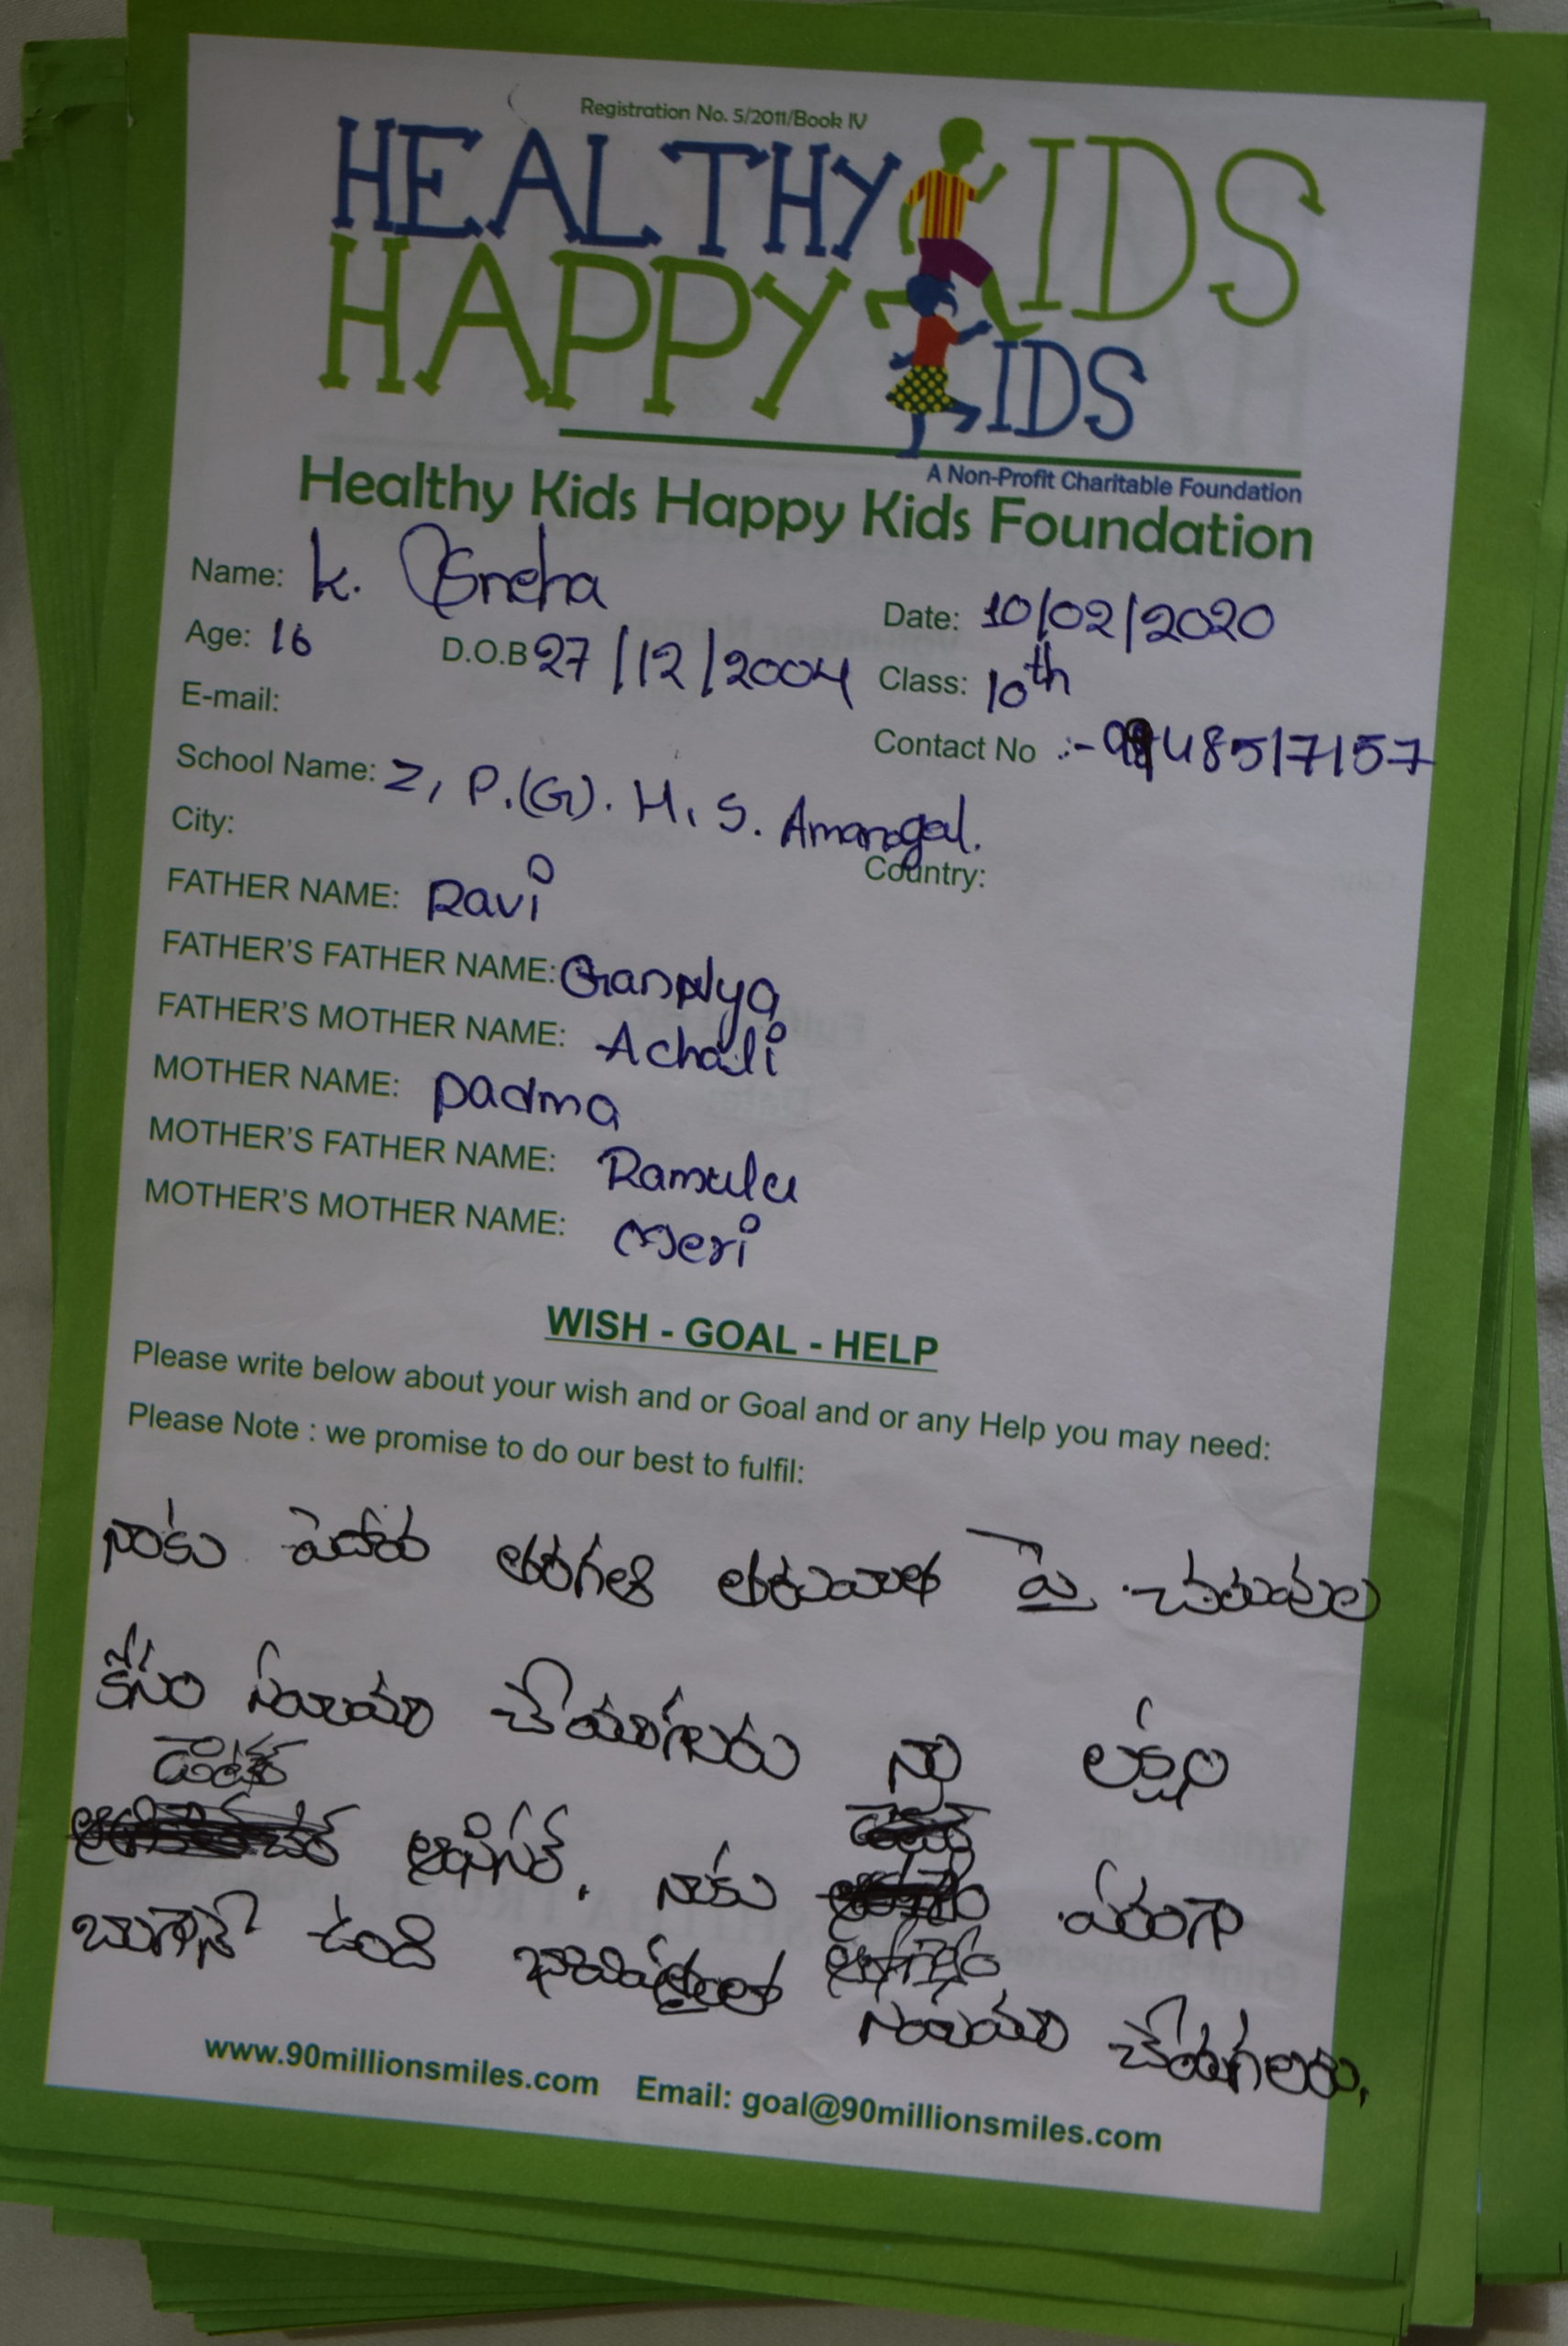 Registration No. 5/2011/Book IV
HEALTHY KIDS
HAPPY KIDS
A Non-Profit Charitable Foundation
Healthy Kids Happy Kids Foundation
Name: K. Sneha
Date: 10/02/2020
Age: 16 D.O.B 27/12/2004 Class: 10th
E-mail:
Contact No :- 9948517157
School Name: Z, P.(G). H. S. Amangal.
City: Country:
FATHER NAME: Ravi
FATHER'S FATHER NAME:
FATHER'S MOTHER NAME: Achali
MOTHER NAME: Padma
MOTHER'S FATHER NAME: Ramulu
MOTHER'S MOTHER NAME: Meri
WISH - GOAL - HELP
Please write below about your wish and or Goal and or any Help you may need:
Please Note : we promise to do our best to fulfil:
నాకు తరగతి తరువాత పై చదువుల
కోసం సహాయం చేయగలరు నా
ఆఫీసర్. నాకు పరంగా
ఉంది సహాయం చేయగలరు.
www.90millionsmiles.com Email: goal@90millionsmiles.com